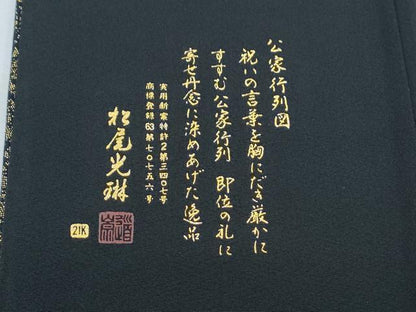 公家行列図
祝いの言葉を胸にだき厳かに
すすむ公家行列 即位の礼に
寄せ丹念に染めあげた逸品
実用新案特許2第三四〇七号
商標登録63第七〇七五六号
松尾光琳
21K